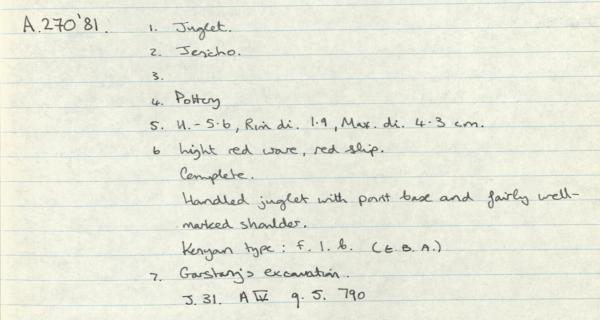 A.270'81.
1. Juglet.
2. Jericho.
3.
4. Pottery
5. H. - 5.6, Rim di. 1.9, Max. di. 4.3 cm.
6 Light red ware, red slip.
Complete.
Handled juglet with point base and fairly well-
marked shoulder.
Kenyon type: f. 1. b. (E.B.A.)
7. Garstang's excavation.
J. 31. A IV q. 5. 790